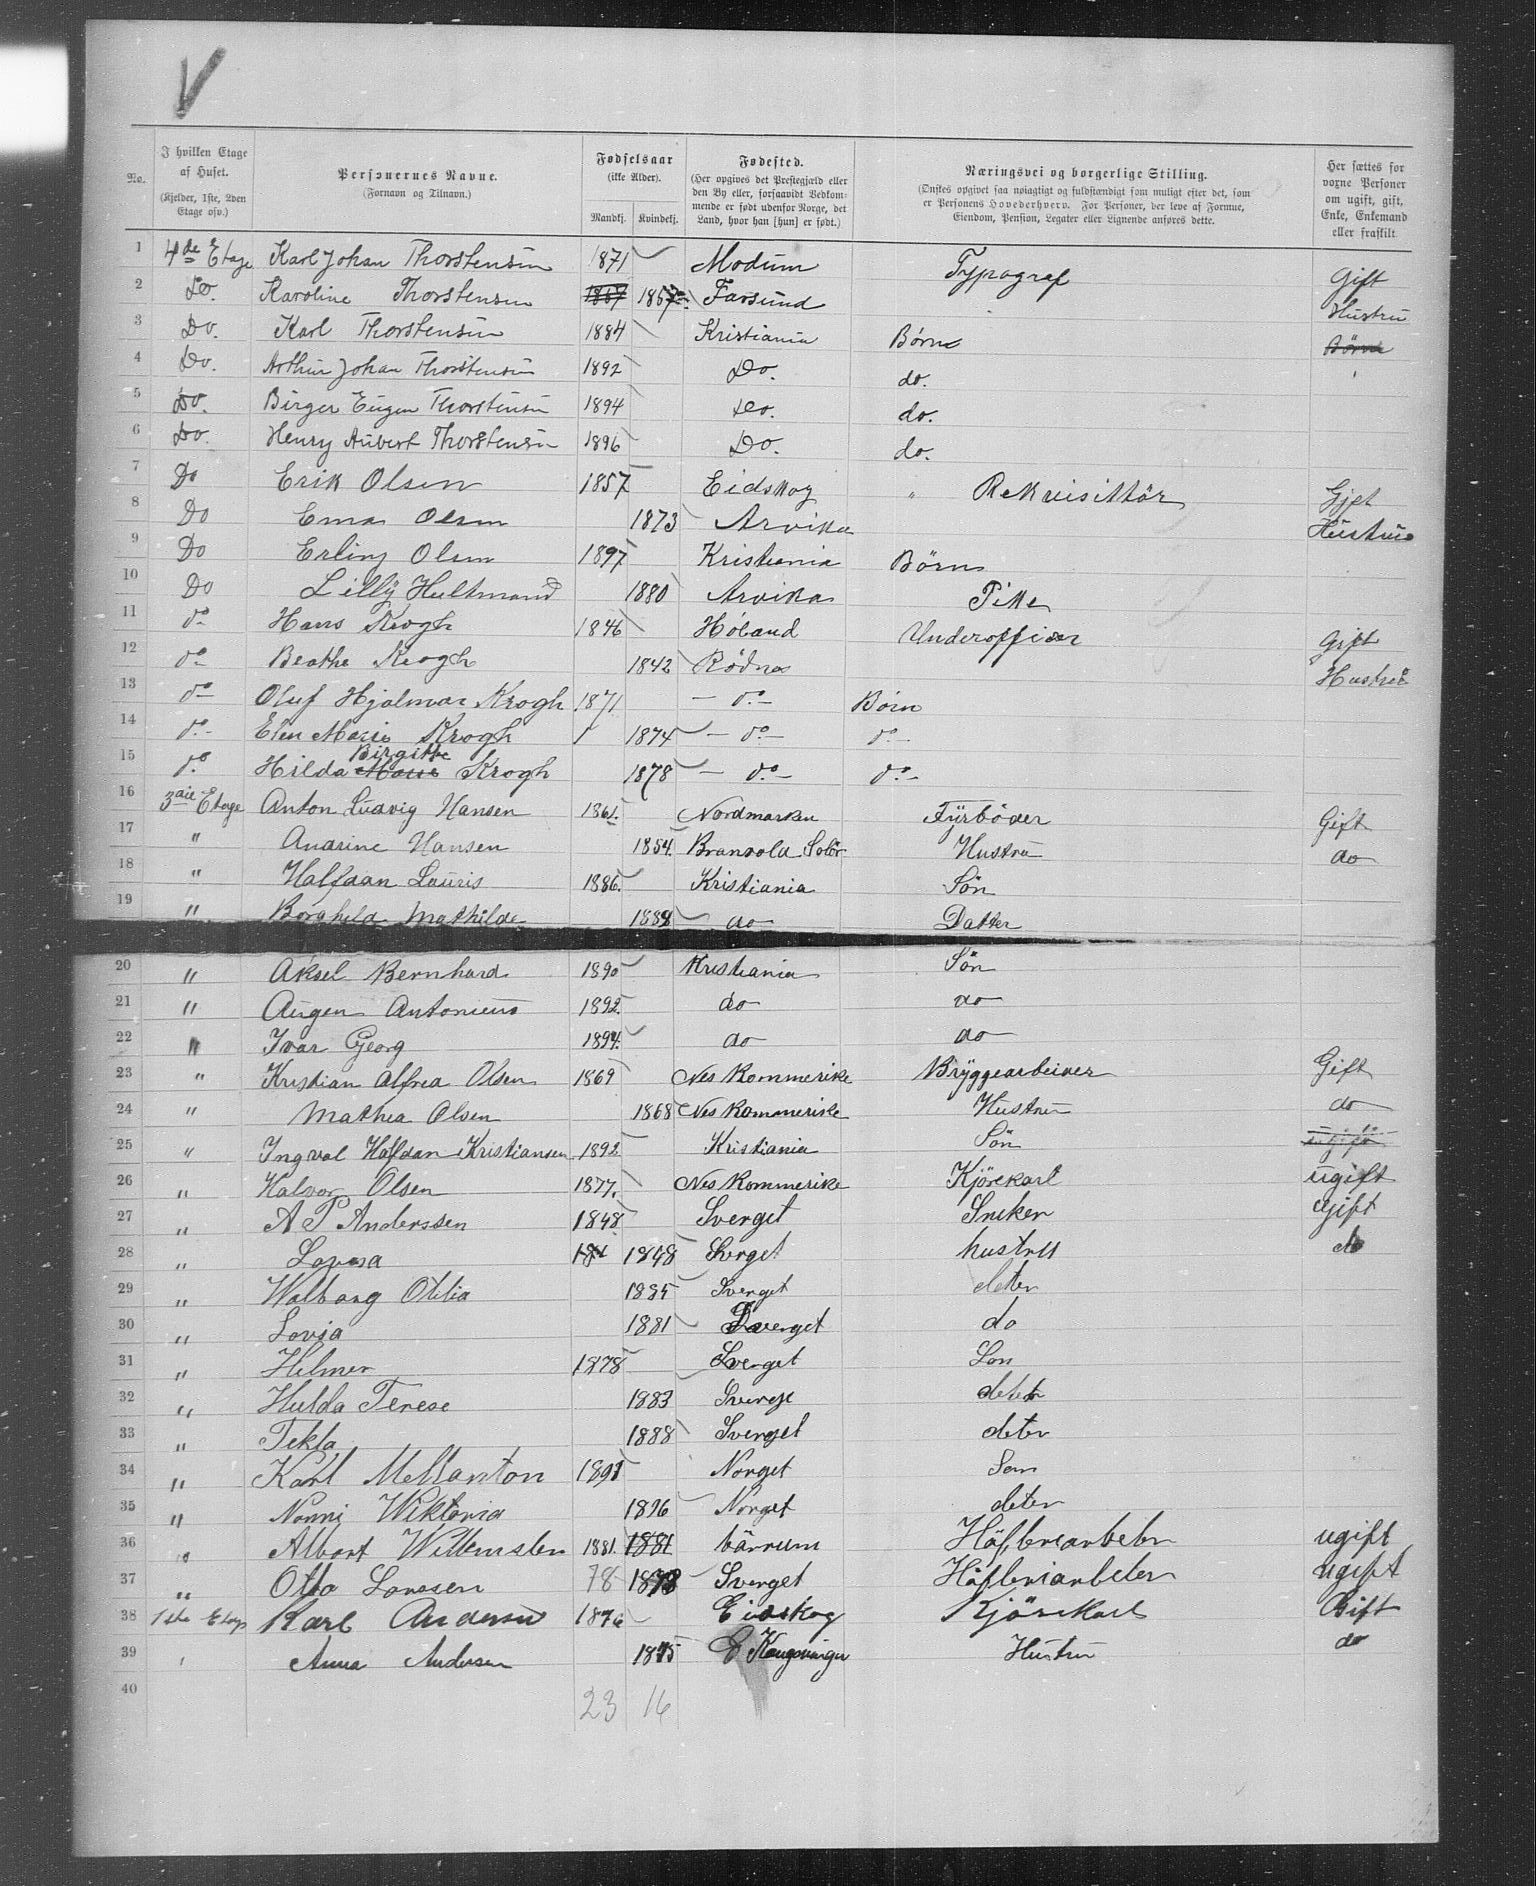 V
No.
I hvilken Etage af Huset. (Kjelder, 1ste, 2den Etage osv.)
Personernes Navne. (Fornavn og Tilnavn.)
Fødselsaar (ikke Alder). Mandkj. Kvindekj.
Fødested. (Her opgives det Prestegjæld eller den By eller, forsaavidt Vedkommende er født udenfor Norge, det Land, hvor han [hun] er født.)
Næringsvei og borgerlige Stilling. (Ønskes opgivet saa nøiagtigt og fuldstændigt som muligt efter det, som er Personens Hovederhverv. For Personer, der leve af Formue, Eiendom, Pension, Legater eller Lignende anføres dette.
Her sættes for voxne Personer om ugift, gift, Enke, Enkemand eller fraskilt.
1 4de Etage Karl Johan Thorstensen 1871 Modum Typograf Gift
2 Do. Karoline Thorstensen 1857 1857 Farsund Hustru
3 Do. Karl Thorstensen 1884 Kristiania Børn Børn
4 Do. Arthur Johan Thorstensen 1892 Do. do.
5 Do. Birger Eugen Thorstensen 1894 Do. do.
6 Do. Henry Aubert Thorstensen 1896 Do. do.
7 Do Erik Olsen 1857 Eidskog " Rekvisittör Gjft
8 Do Ema Olsen 1873 Arvika Hustru
9 Do Erling Olsen 1897 Kristiania Børn
10 Do Lilly Hultmand 1880 Arvika Pike
11 do Hans Krogh 1846 Høland Underofficer Gift
12 do Beathe Krogh 1842 Rødnes Hustru
13 do Oluf Hjalmar Krogh 1871 — do — Børn
14 do Elen Marie Krogh 1874 — do — do —
15 do Hilda Marie Birgitte Krogh 1878 — do — do —
16 3die Etage Anton Ludvig Hansen 1861. Nordmarken Fyrbøder Gift
17 " Andrine Hansen 1854. Branvold Solör Hustru do
18 " Halfdan Lauris 1886. Kristiania Sön
19 " Borghild Mathilde 1888 do Datter
20 " Aksel Bernhard 1890 Kristiania Sön
21 " Augen Antonius 1892. do do
22 " Ivar Georg 1894. do do
23 " Kristian Alfred Olsen 1869 Nes Rommerike Bryggearbeider Gift
24 " Mathea Olsen 1868 Nes Romeriske Hustru do
25 " Ingval Halfdan Kristiansen 1892 Kristiania Sön ugift
26 " Halvor Olsen 1877. Nes Rommerike Kjörekarl ugift
27 " A P Anderssen 1848 Sverget Sneker Gift
28 " Lovisa 181 1848 Sverget hustru do
29 " Walborg Otilia 1885 Sverget deter
30 " Lovia 1881 Sverget do
31 " Helmer 1878 Sverget Son
32 " Hulda Terese 1883 Sverge deter
33 " Tekla 1888 Sverget deter
34 " Karl Mellanton 1891 Norget Son
35 " Nonni Wiktoria 1896 Norget deter
36 " Albart Willemslen 1881. 1881 bärrum Höfleriarbeter ugift
37 " Otto Larssen 78 1878 Sverget Höfleriarbeter ugift
38 1ste Etage Karl Andersen 1876 Eidskog Kjörekarl Gift
39 Anna Andersen 1875 Kongsvinger Hustru do
40 23 16